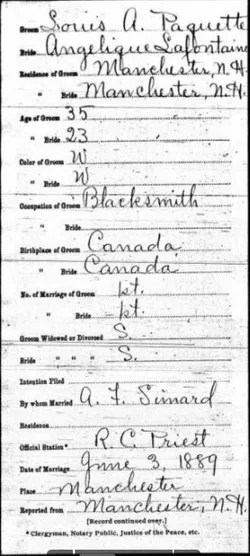 Groom Louis A. Paquette
Bride Angelique Lafontaine
Residence of Groom Manchester, N.H.
" Bride Manchester, N.H.
Age of Groom 35
" Bride 23
Color of Groom W
" Bride W
Occupation of Groom Blacksmith
" Bride
Birthplace of Groom Canada
" Bride Canada
No. of Marriage of Groom 1st.
" Bride 1st.
Groom Widowed or Divorced S.
Bride " " " S.
Intention Filed
By whom Married A. F. Simard
Residence
Official Station* R.C. Priest
Date of Marriage June 3, 1889
Place Manchester
Reported from Manchester, N.H.
[Record continued over.]
* Clergyman, Notary Public, Justice of the Peace, etc.